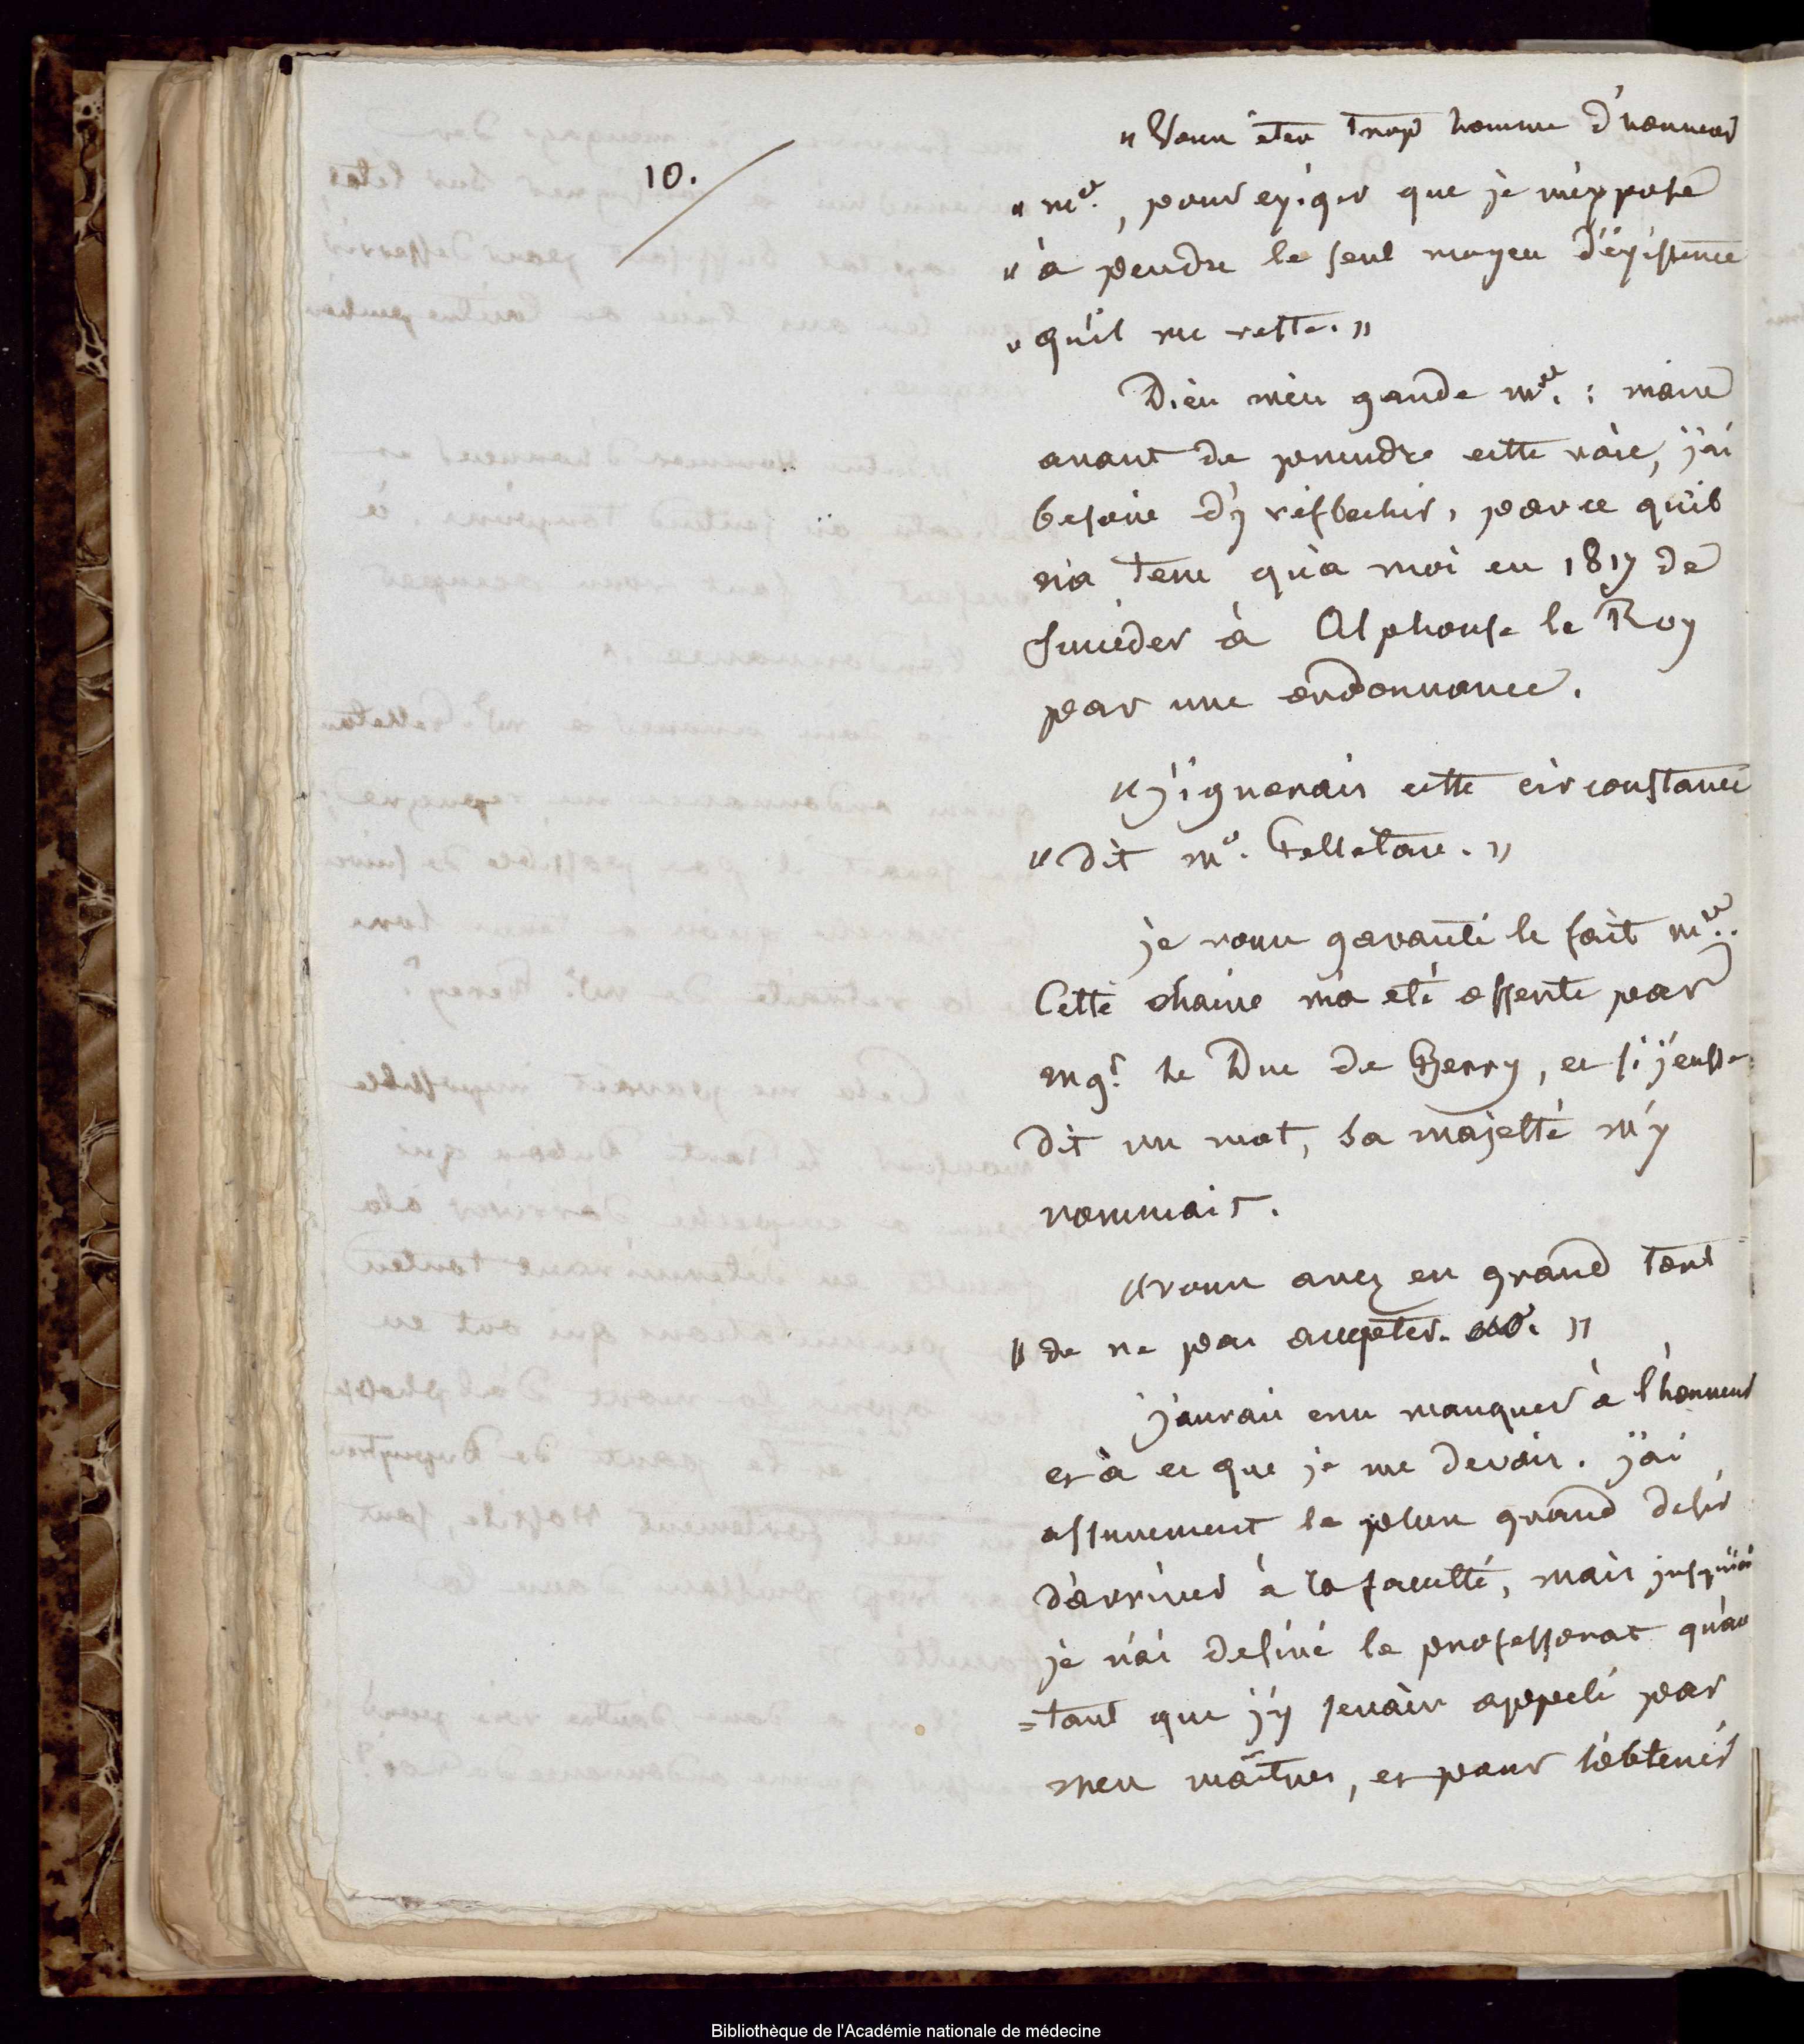 10.
" Vous êtes trop homme d'honneur
" mr., pour exiger que je m'expose
" à perdre le seul moyen d'éxistence
" qu'il me reste. "
Dieu m'en garde mr. : mais
avant de prendre cette voie, j'ai
besoin d'y réflechir, parce qu'il
n'a tenu qu'à moi en 1817 de
succéder à Alphonse le Roy
par une ordonnance.
" j'ignorais cette circonstance
" dit mr. Pelletan. "
je vous garanti le fait mr.
Cette chaire m'a eté offerte par
mgr. le Duc de Berry, et si j'eusse
dit un mot, sa majesté m'y
nommait.
" vous avez eu grand tort
" de ne pas accepter. "
j'aurais cru manquer à l'honneur
et à ce que je me devais. j'ai
assurement le plus grand desir
d'arriver à la faculté, mais jusqu'ici
je n'ai desiré le professorat qu'au
=tant que j'y serais appelé par
mes maîtres, et pour l'obtenir
Bibliothèque de l'Académie nationale de médecine